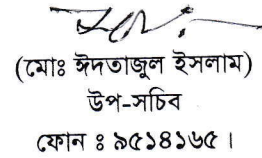 (মোঃ ঈদতাজুল ইসলাম)
উপ-সচিব
ফোন ঃ ৯৫১৪১৬৫ ।